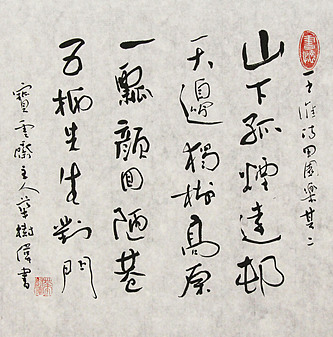 王維詩田園樂其二
山下孤煙遠邨
天邊獨樹高原
一瓢顏回陋巷
五柳先生對門
寶雲主人樹偉書